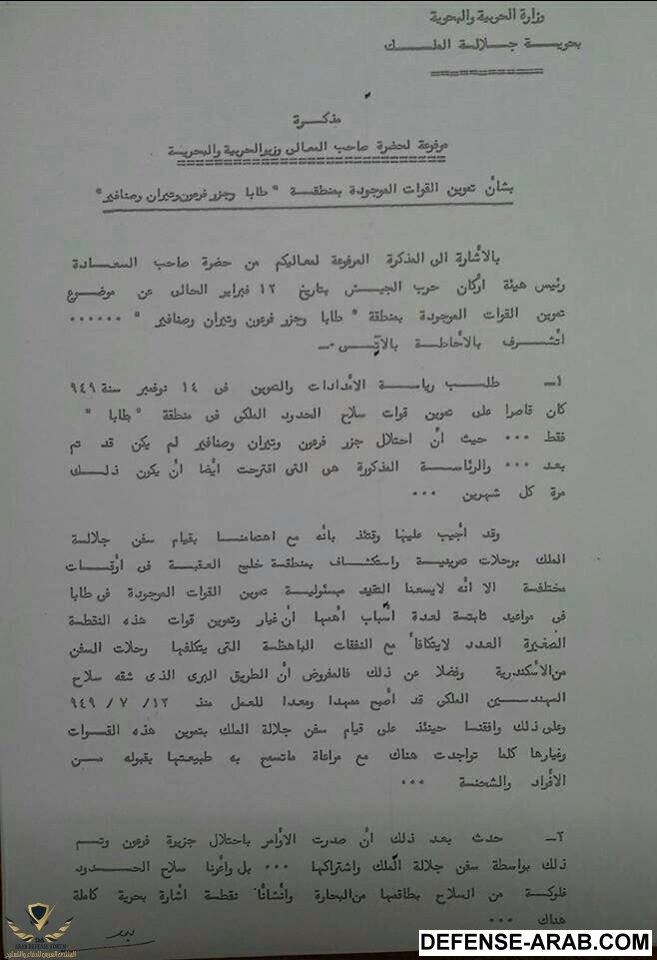 وزارة الحربية والبحرية
بحرية جلالة الملك
مذكرة
مرفوعة لحضرة صاحب المعالى وزير الحربية والبحرية
بشأن تموين القوات الموجودة بمنطقة " طابا وجزر فرعون وتيران وصنافير "
بالأشارة الى المذكرة المرفوعة لمعاليكم من حضرة صاحب السعادة
رئيس هيئة أركان حرب الجيش بتاريخ ١٢ فبراير الحالى عن موضوع
تموين القوات الموجودة بمنطقة " طابا وجزر فرعون وتيران وصنافير " ••••••
أتشرف بالأحاطة بالآتى :ـ
١ـ طلب رياسة الأمدادات والتموين فى ١٤ نوفمبر سنة ٩٤٩
كان قاصرا على تموين قوات سلاح الحدود الملكى فى منطقة " طابا "
فقط ••• حيث أن احتلال جزر فرعون وتيران وصنافير لم يكن قد تم
بعد ••• والرئاسة المذكورة هى التى اقترحت أيضا أن يكون ذلك
مرة كل شهرين •••
وقد أجيب عليها وقتئذ بأنه مع اهتمامنا بقيام سفن جلالة
الملك برحلات تدريبية واستكشاف بمنطقة خليج العقبة فى أوقات
مختلفة الا انه لايسعنا التقيد بمسئولية تموين القوات الموجودة فى طابا
فى مواعيد ثابتة لعدة أسباب أهمها أن غيار وتموين قوات هذه النقطة
الصغيرة العدد لايتكافأ مع النفقات الباهظة التى يتكلفها رحلات السفن
من الأسكندرية وفضلا عن ذلك فالمفروض أن الطريق البرى الذى شقه سلاح
المهندسين الملكى قد أصبح ممهدا ومعدا للعمل منذ ١٢/ ٧ / ٩٤٩
وعلى ذلك وافقنا حينئذ على قيام سفن جلالة الملك بتموين هذه القوات
وغيارها كلما تواجدت هناك مع مراعاة ماتسمح به طبيعتها بقبوله من
الأفراد والشحنة •••
٢ـ حدث بعد ذلك أن صدرت الأوامر باحتلال جزيرة فرعون وتم
ذلك بواسطة سفن جلالة الملك واشتراكها ••• بل وأعرنا سلاح الحدود
فلوكة من السلاح بطاقمها من البحارة وأنشأنا نقطة اشارة بحرية كاملة
هناك •••
ARAB DEFENSE FORUM
المنتدى العربي للدفاع والتسليح
DEFENSE-ARAB.COM